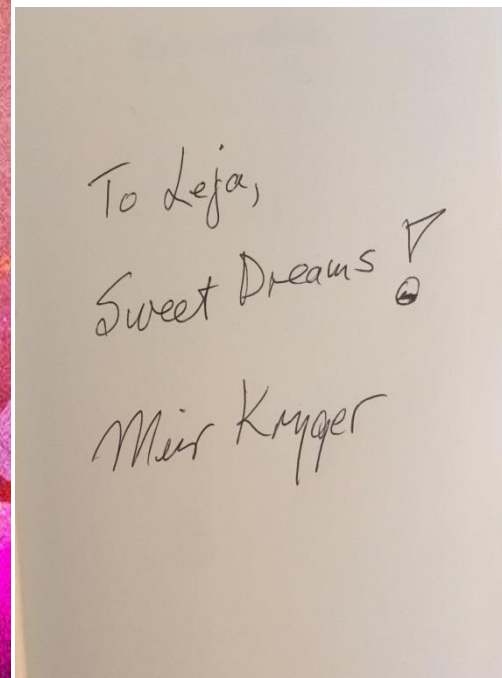 To Leja,
Sweet Dreams!
Meir Kryger